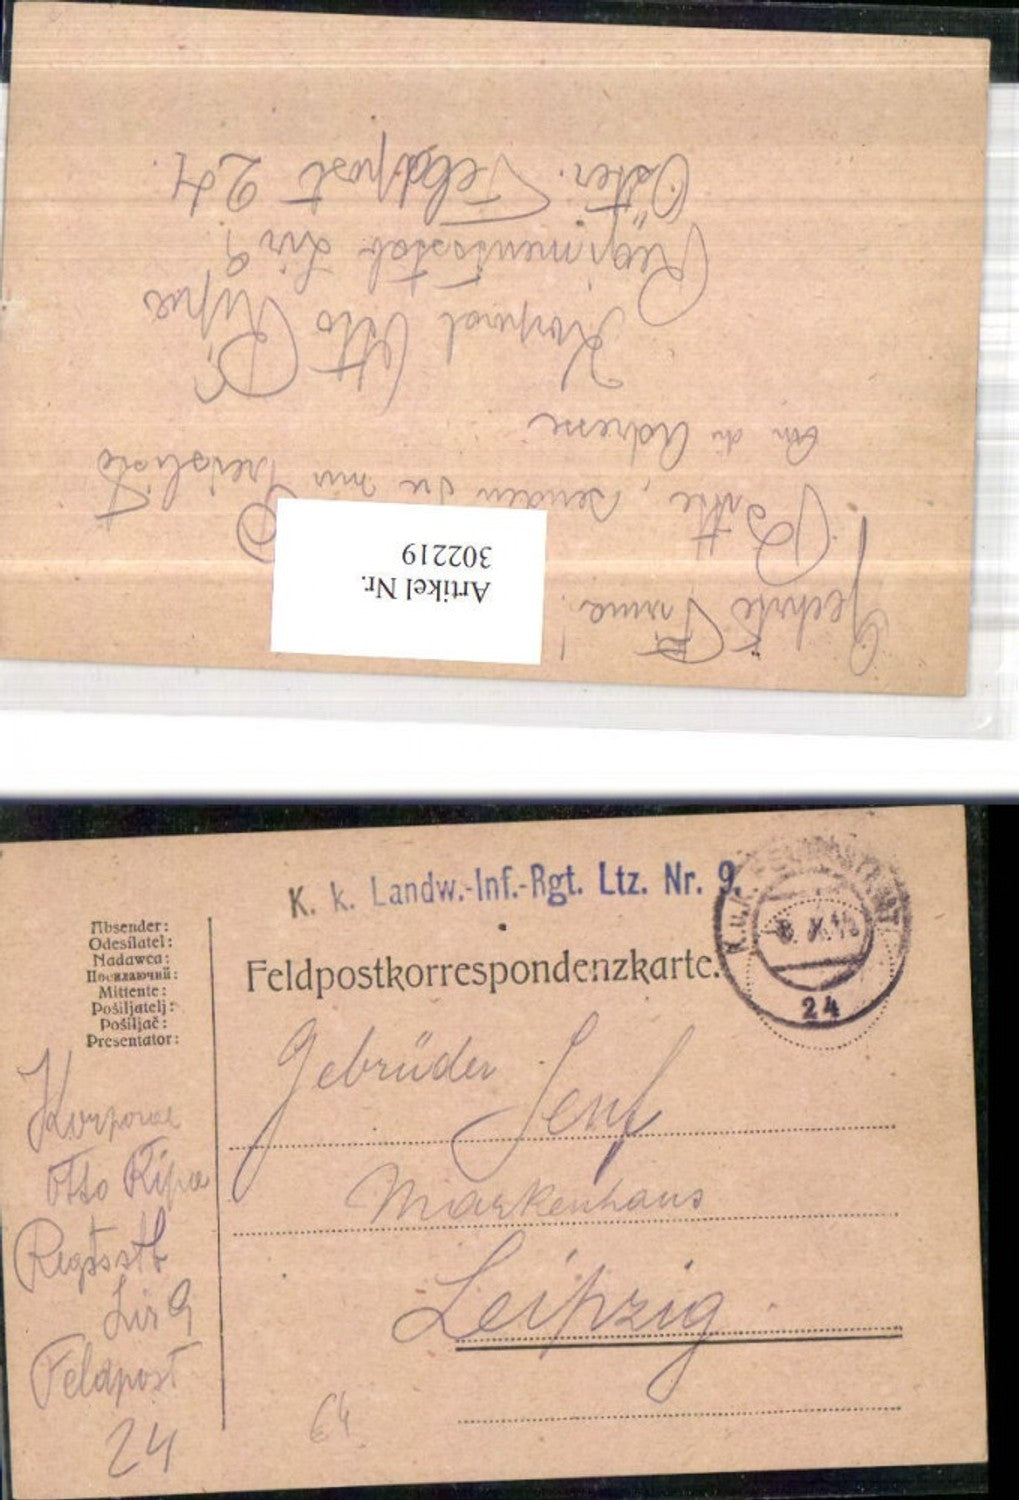 Geehrte Firma!
Bitte, senden Sie mir Preisliste
an die Adresse
Korporal Otto Ripa
Regimentsstab Lir 9.
Öster. Feldpost 24.
Artikel Nr.
302219
K. k. Landw.-Inf.-Rgt. Ltz. Nr. 9.
K.u.K.
8. X.
24
Absender:
Odesílatel:
Nadawca:
Посилаючий:
Mittente:
Pošiljatelj:
Pošiljač:
Presentator:
Feldpostkorrespondenzkarte.
Gebrüder Senf
Markenhaus
Leipzig.
Korporal
Otto Ripa
Regtsstb
Lir 9
Feldpost
24
64